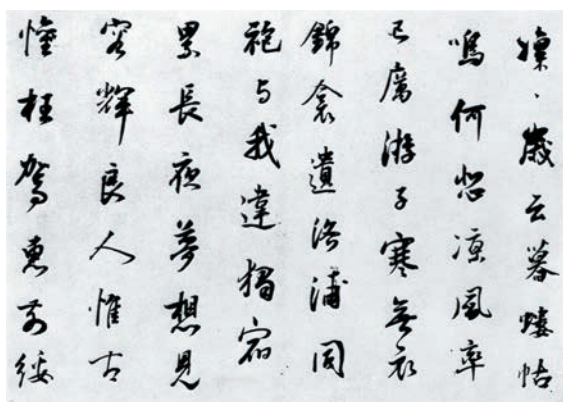 凜、歲云暮螻蛄
鳴何悲涼風率
已厲游子寒無衣
錦衾遺洛浦同
袍与我違獨宿
累長夜夢想見
容輝良人惟古
懽枉駕惠前綏